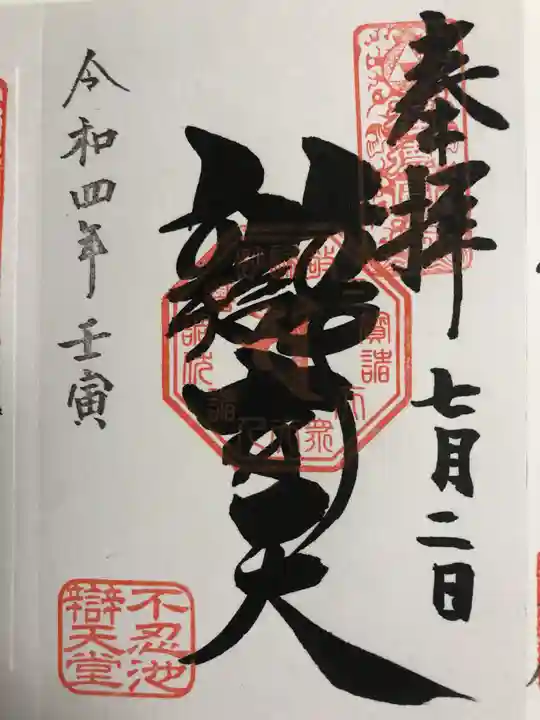 奉拝
七月二日
辯才天
令和四年 壬寅
不忍池
辯天堂